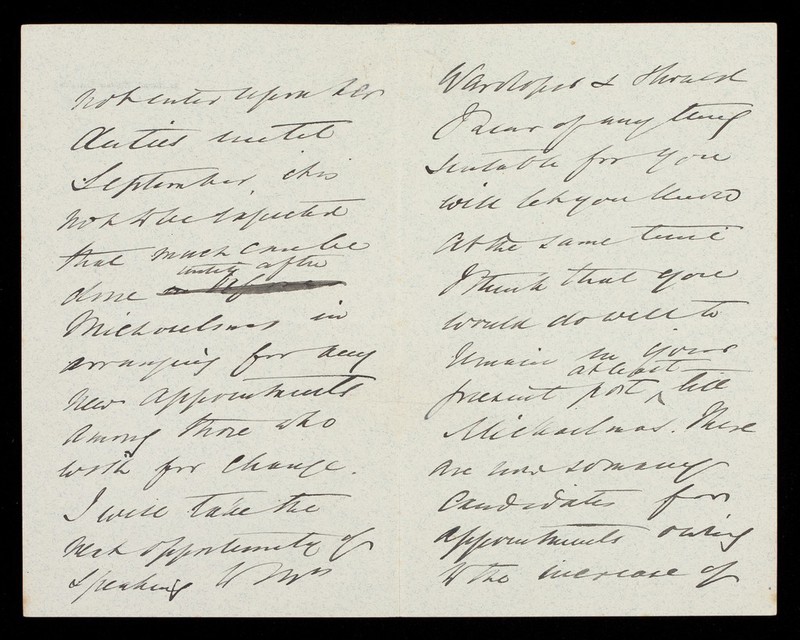 not enter upon her
duties until
September, it is
not to be expected
that much can be
done until after
Michaelmas in
arranging for any
new appointments
among those who
wish for change.
I will take the
next opportunity of
speaking to Mrs
Wardroper & should
I hear of any thing
suitable for you
will let you know
At the same time
I think that you
would do well to
remain in your
present post, at least till
Michaelmas. There
are now so many
candidates for
appointments owing
to the increase of